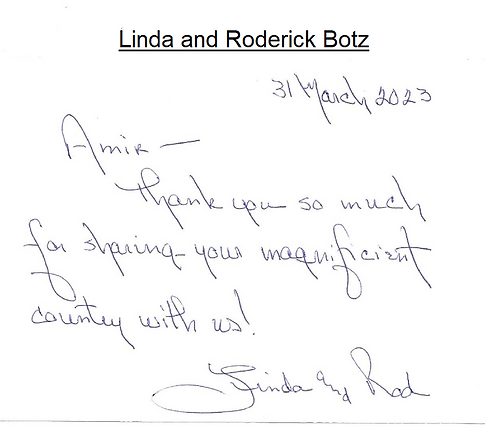 Linda and Roderick Botz
31 March 2023
Amir —
Thank you so much
for sharing your magnificient
country with us!
Linda and Rod